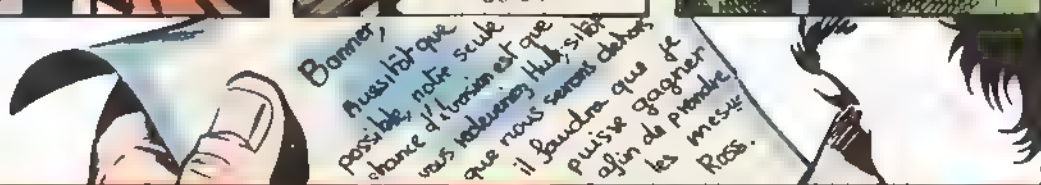 Banner,
Aussitôt que
possible, notre seule
chance d'évasion est que
vous redeveniez Hulk, sitôt
que nous serons dehors
il faudra que je
puisse gagner
afin de prendre
les mesu
Ross.